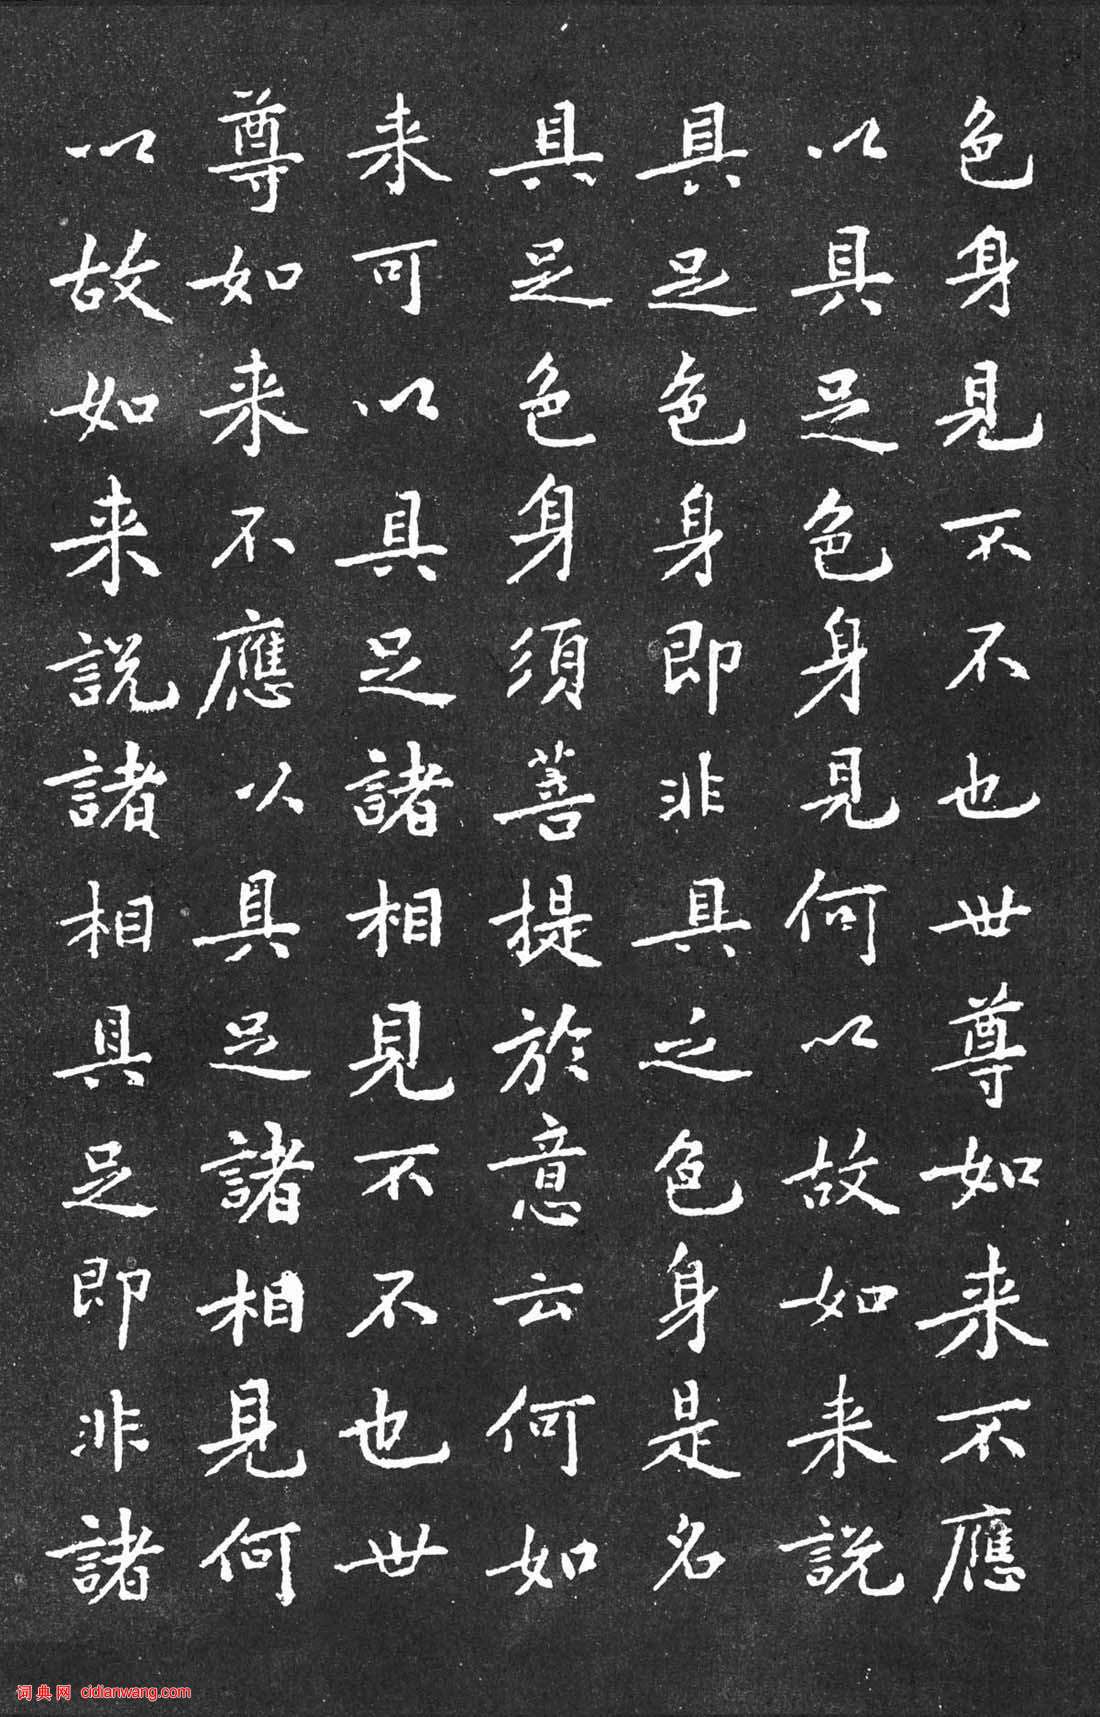 色身見不不也世尊如来不應
以具足色身見何以故如来說
具足色身即非具之色身是名
具足色身須菩提於意云何如
来可以具足諸相見不不也世
尊如来不應以具足諸相見何
以故如来說諸相具足即非諸
词典网 cidianwang.com